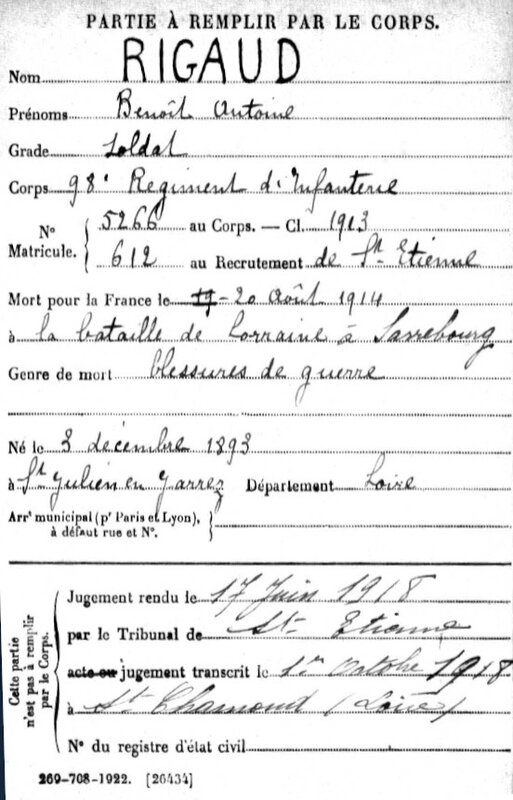 PARTIE À REMPLIR PAR LE CORPS.
Nom RIGAUD
Prénoms Benoît Antoine
Grade Soldat
Corps 98e Regiment d'Infanterie
N° Matricule. 5266 au Corps. — Cl. 1913
612 au Recrutement de St Etienne
Mort pour la France le 19-20 Août 1914
à la bataille de Lorraine à Sarrebourg
Genre de mort blessures de guerre
Né le 3 décembre 1893
à St Julien en Jarrez Département Loire
Arrt municipal (pr Paris et Lyon),
à défaut rue et N°.
Cette partie
n'est pas à remplir
par le Corps.
Jugement rendu le 17 Juin 1918
par le Tribunal de St Etienne
acte ou jugement transcrit le 1er Octobre 1918
à St Chamond (Loire)
N° du registre d'état civil
269-708-1922. [26434]